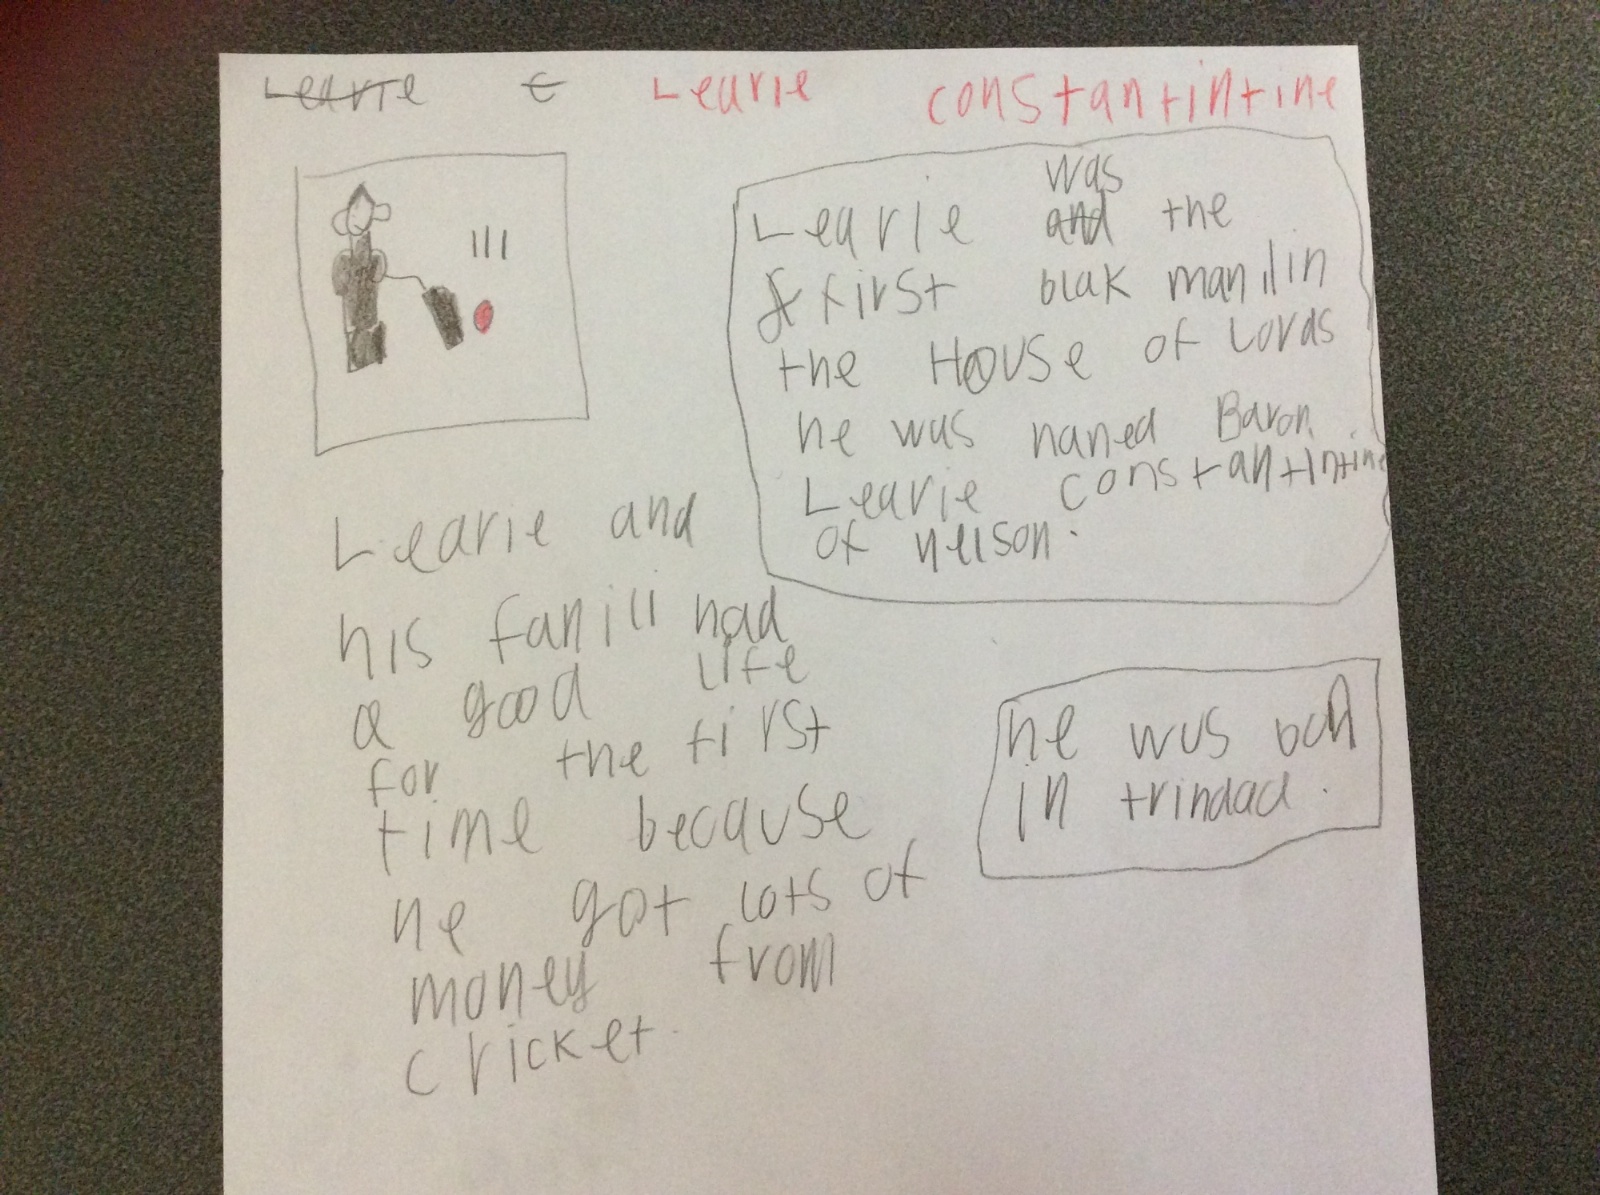 Learie c Learie constantintine
was
Learie and the
f first blak man in
the House of Lords
he was naned Baron
Learie constantintine
of nelson.
Learie and
his fanili had
a good life
for the first
time because
he got lots of
money from
cricket.
he wus bon
in trindad.